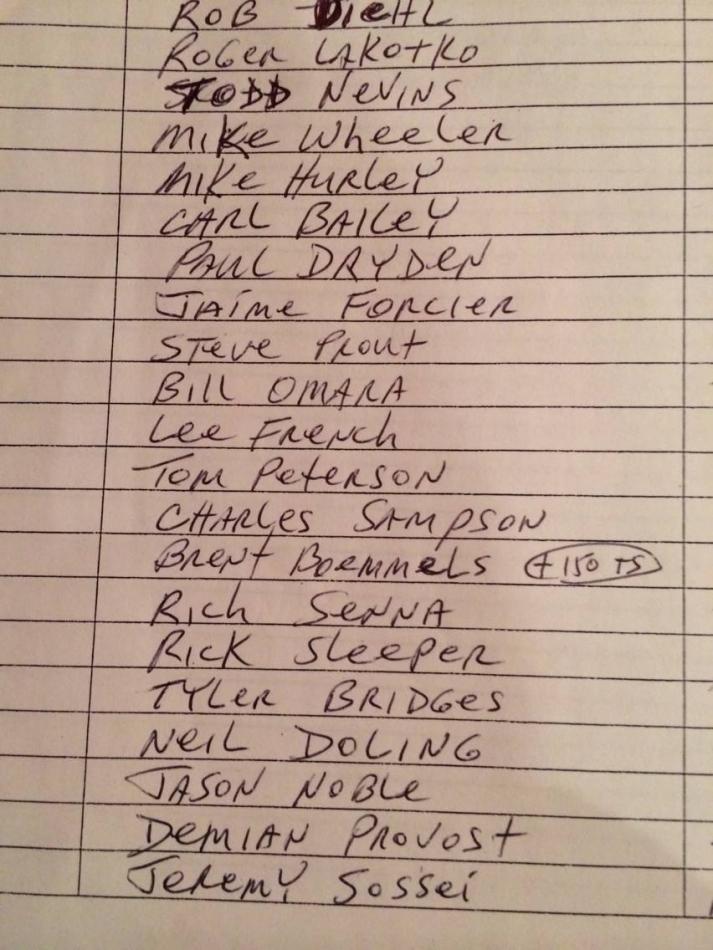 ROB DIEHL
ROGER LAKOTKO
TODD NEVINS
MIKE WHEELER
MIKE HURLEY
CARL BAILEY
PAUL DRYDEN
JAIME FORCIER
STEVE PROUT
BILL OMARA
LEE FRENCH
TOM PETERSON
CHARLES SAMPSON
BRENT BOEMMELS +150 TS
RICH SENNA
RICK SLEEPER
TYLER BRIDGES
NEIL DOLING
JASON NOBLE
DEMIAN PROVOST
JEREMY SOSSEI